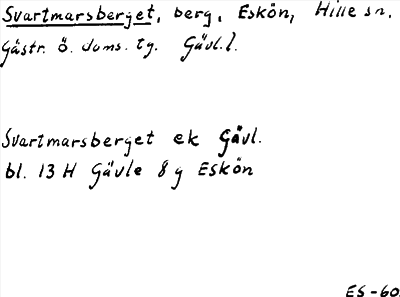 Svartmarsberget, berg, Eskön, Hille sn.
Gästr. Ö. doms. tg. Gävl. l.
Svartmarsberget ek Gävl.
bl. 13 H Gävle 8 g Eskön
ES-60